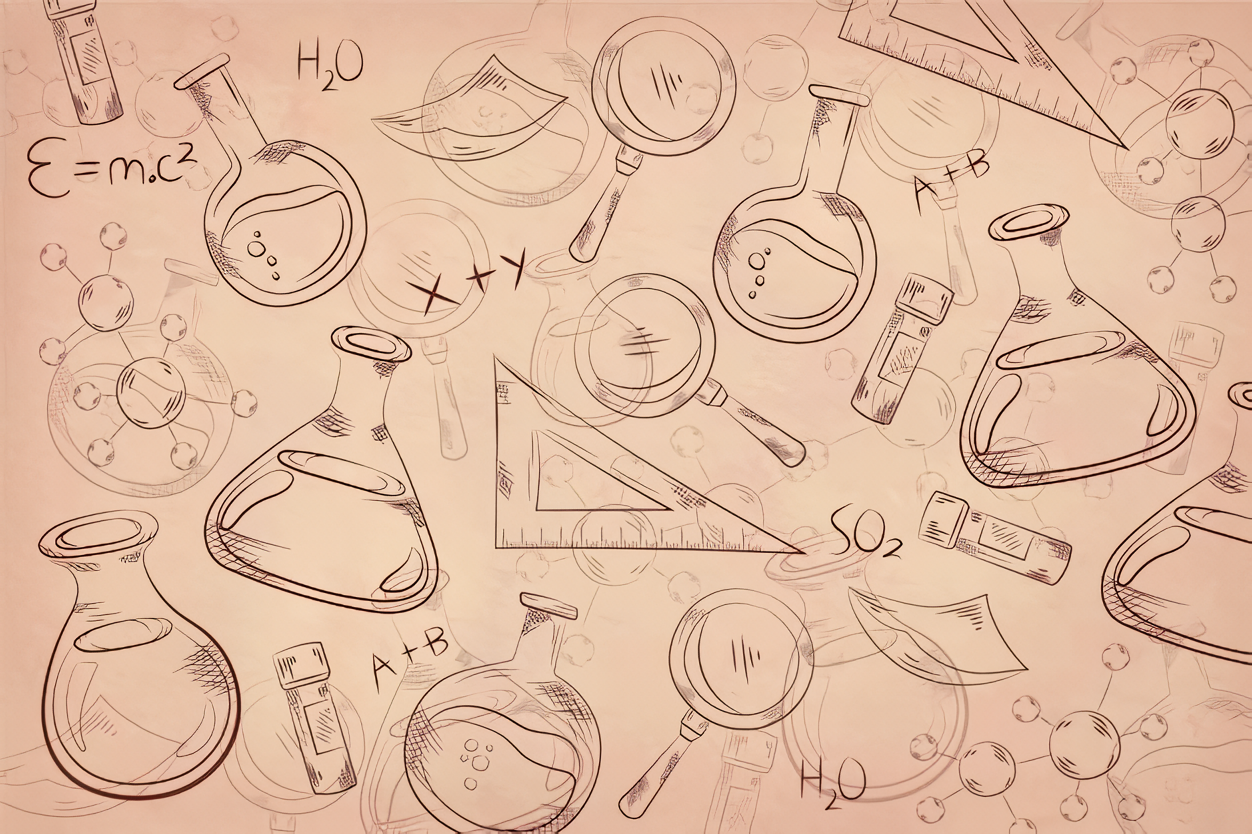 H₂O
Ɛ=m.c²
A+B
x+y
SO₂
A+B
H₂O